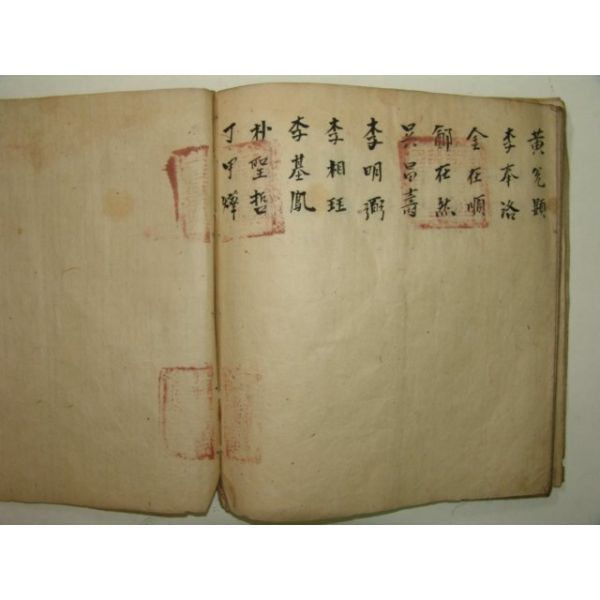 黃冕顯
李奉洛
金在順
鄭在然
吳昌壽
李明弼
李相玨
李基鳳
朴聖哲
丁甲燁